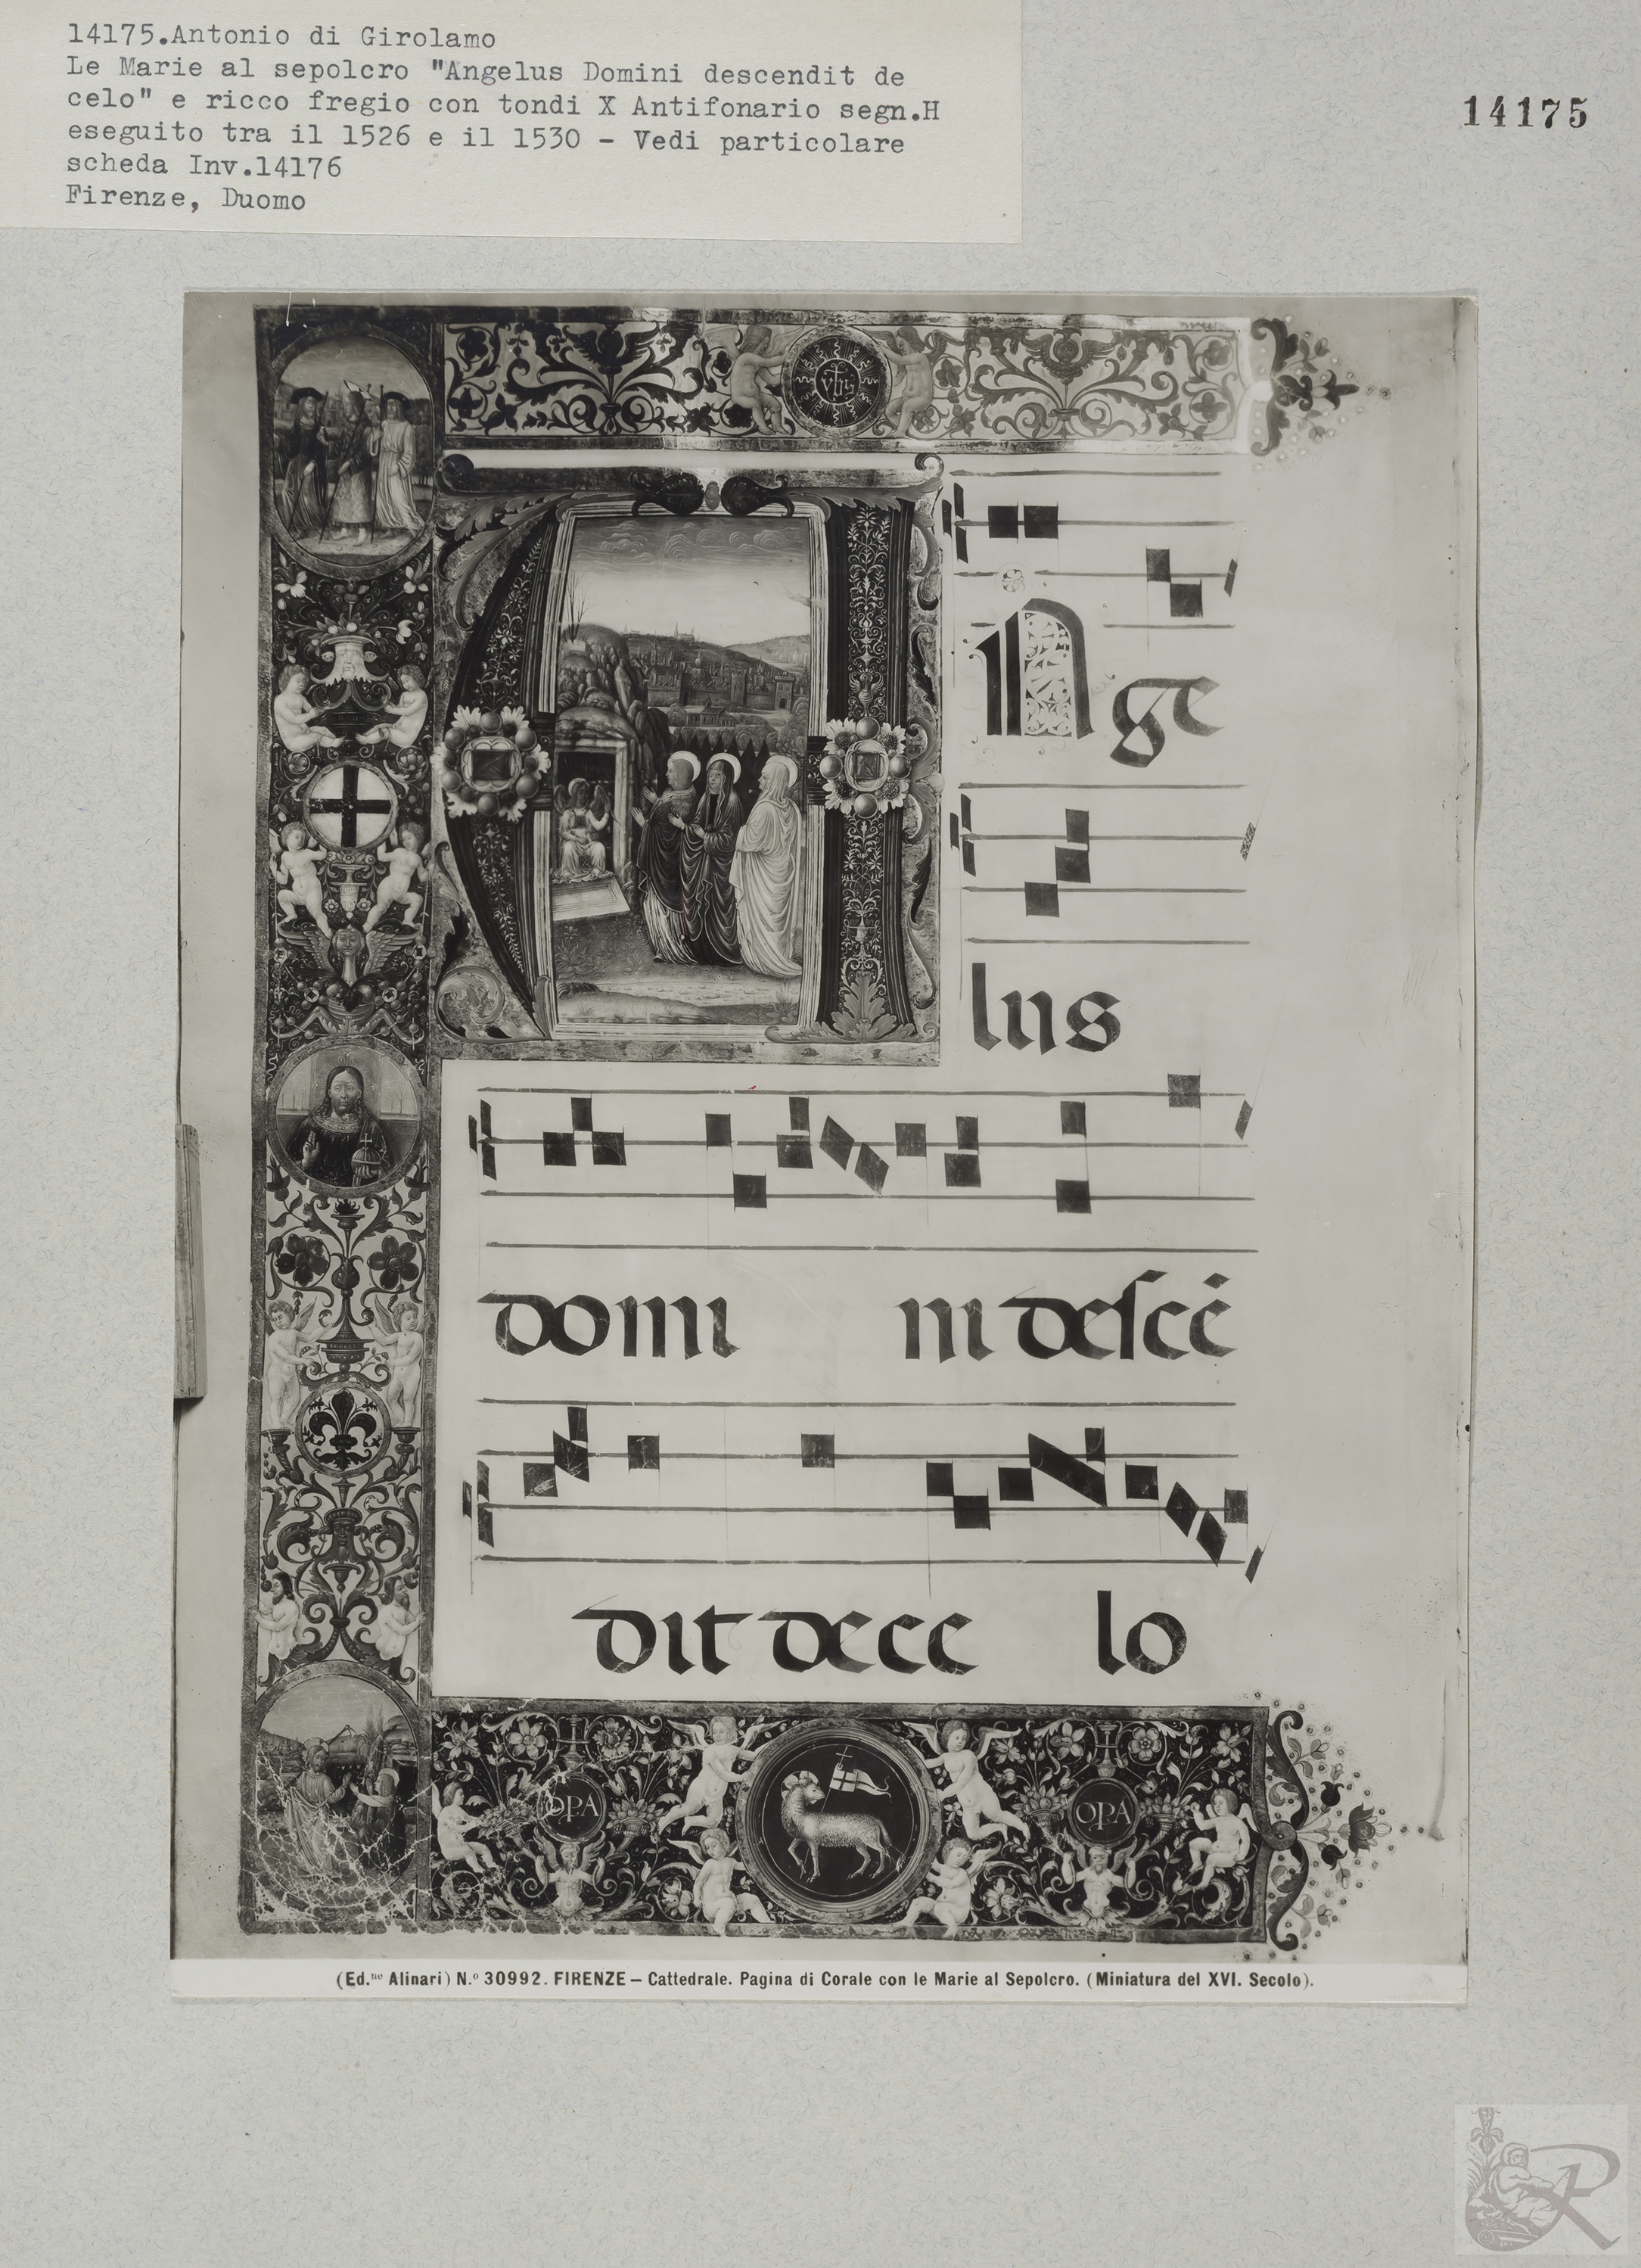 14175.Antonio di Girolamo
Le Marie al sepolcro "Angelus Domini descendit de
celo" e ricco fregio con tondi X Antifonario segn.H
eseguito tra il 1526 e il 1530 - Vedi particolare
scheda Inv.14176
Firenze, Duomo
14175
yhs
Nge
lus
domi ni descē
dit de ce lo
OPA OPA
(Ed.ne Alinari) N.o 30992. FIRENZE — Cattedrale. Pagina di Corale con le Marie al Sepolcro. (Miniatura del XVI. Secolo).
R